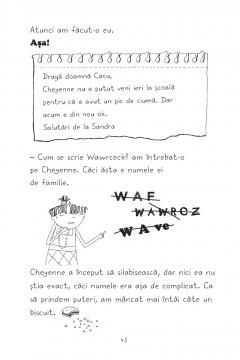 Atunci am făcut-o eu.
Așa!
Dragă doamnă Cacu,
Cheyenne nu a putut veni ieri la școală
pentru că a avut un pic de ciumă. Dar
acum e din nou ok.
Salutări de la Sandra
– Cum se scrie Wawrceck? am întrebat-o
pe Cheyenne. Căci ăsta e numele ei
de familie.
WAF
WAWROZ
WAve
Cheyenne a început să silabisească, dar nici ea nu
știa exact, căci numele era așa de complicat. Ca
să prindem puteri, am mâncat mai întâi câte un
biscuit.
45